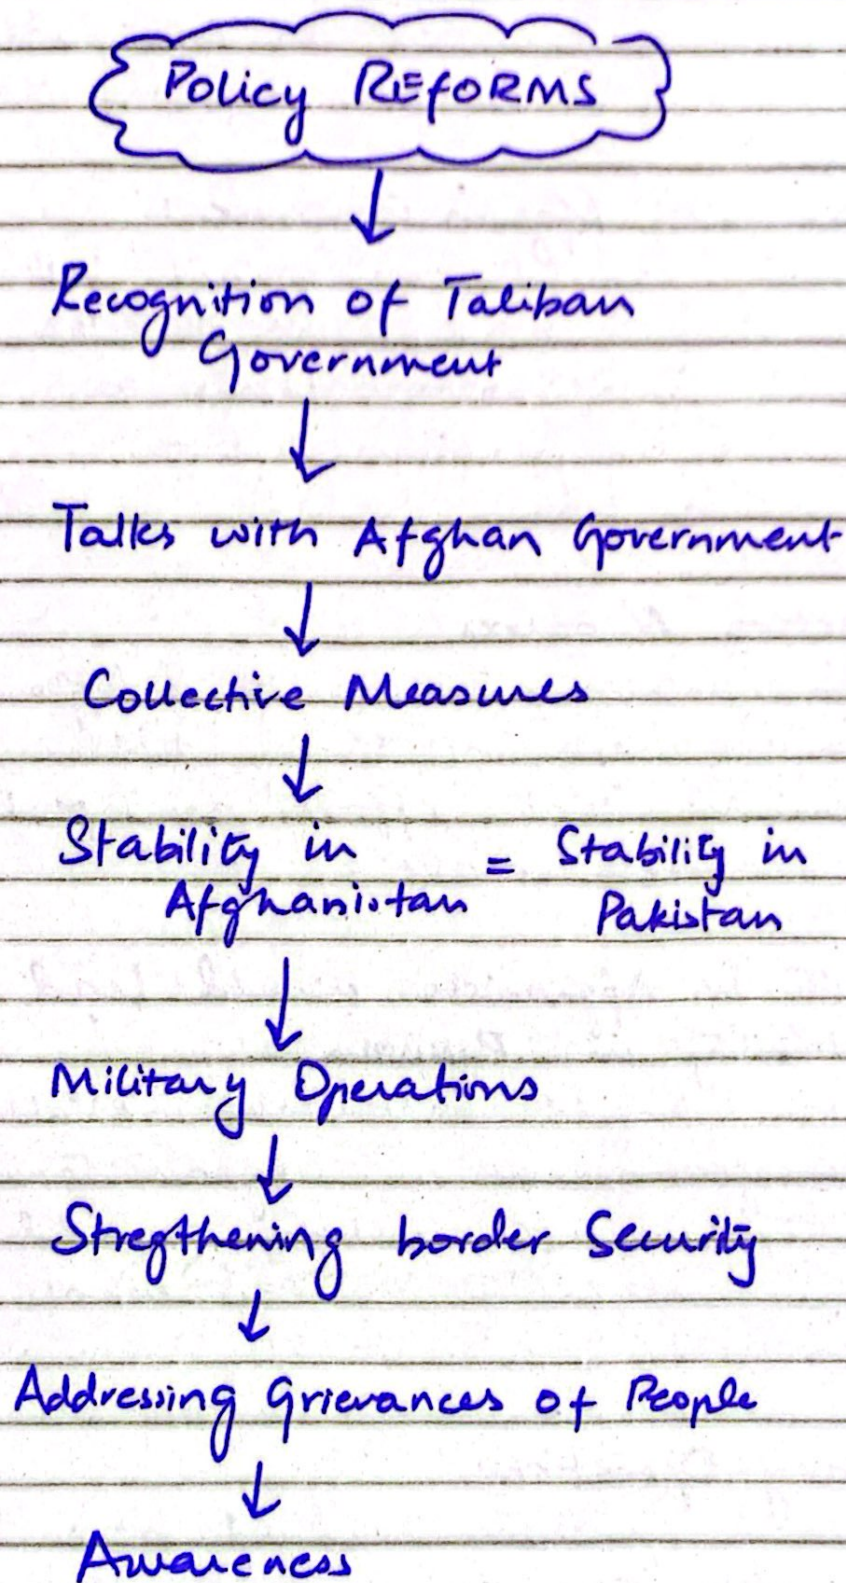 Policy REFORMS
Recognition of Taliban
Government
Talks with Afghan Government
Collective Measures
Stability in = Stability in
Afghanistan Pakistan
Military Operations
Stregthening border Security
Addressing Grievances of People
Awareness